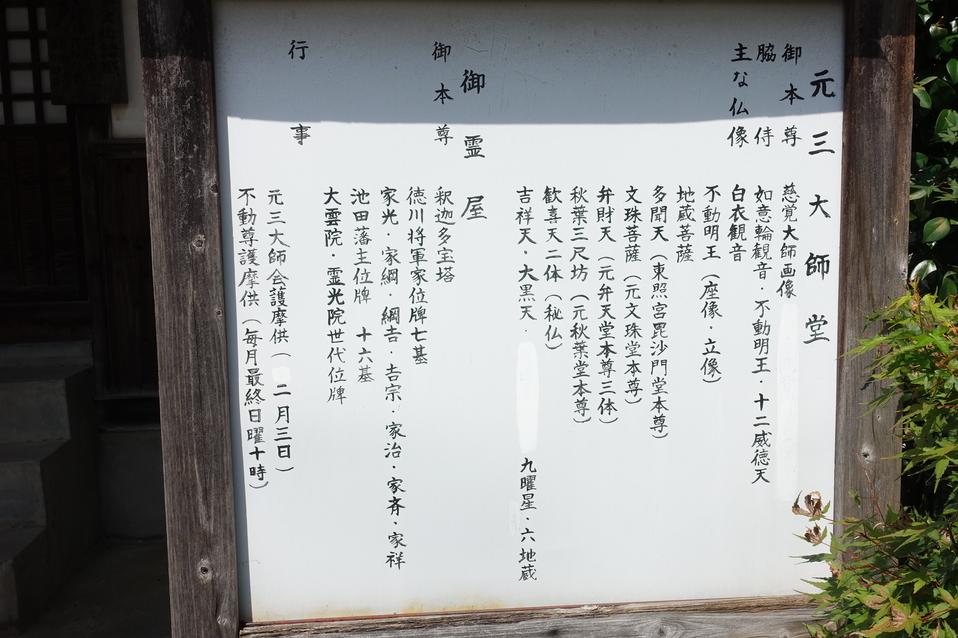 元三大師堂
御本尊 慈覚大師画像
脇侍 如意輪観音・不動明王・十二威徳天
主な仏像 白衣観音
不動明王(座像・立像)
地蔵菩薩
多聞天(東照宮毘沙門堂本尊)
文珠菩薩(元文珠堂本尊)
弁財天(元弁天堂本尊三体)
秋葉三尺坊(元秋葉堂本尊)
歓喜天二体(秘仏)
吉祥天・大黒天・ 九曜星・六地蔵
御霊屋
御本尊 釈迦多宝塔
徳川将軍家位牌七基
家光・家綱・綱吉・吉宗・家治・家斉・家祥
池田藩主位牌 十六基
大雲院・霊光院世代位牌
行事
元三大師会護摩供( 二月三日)
不動尊護摩供(毎月最終日曜十時)